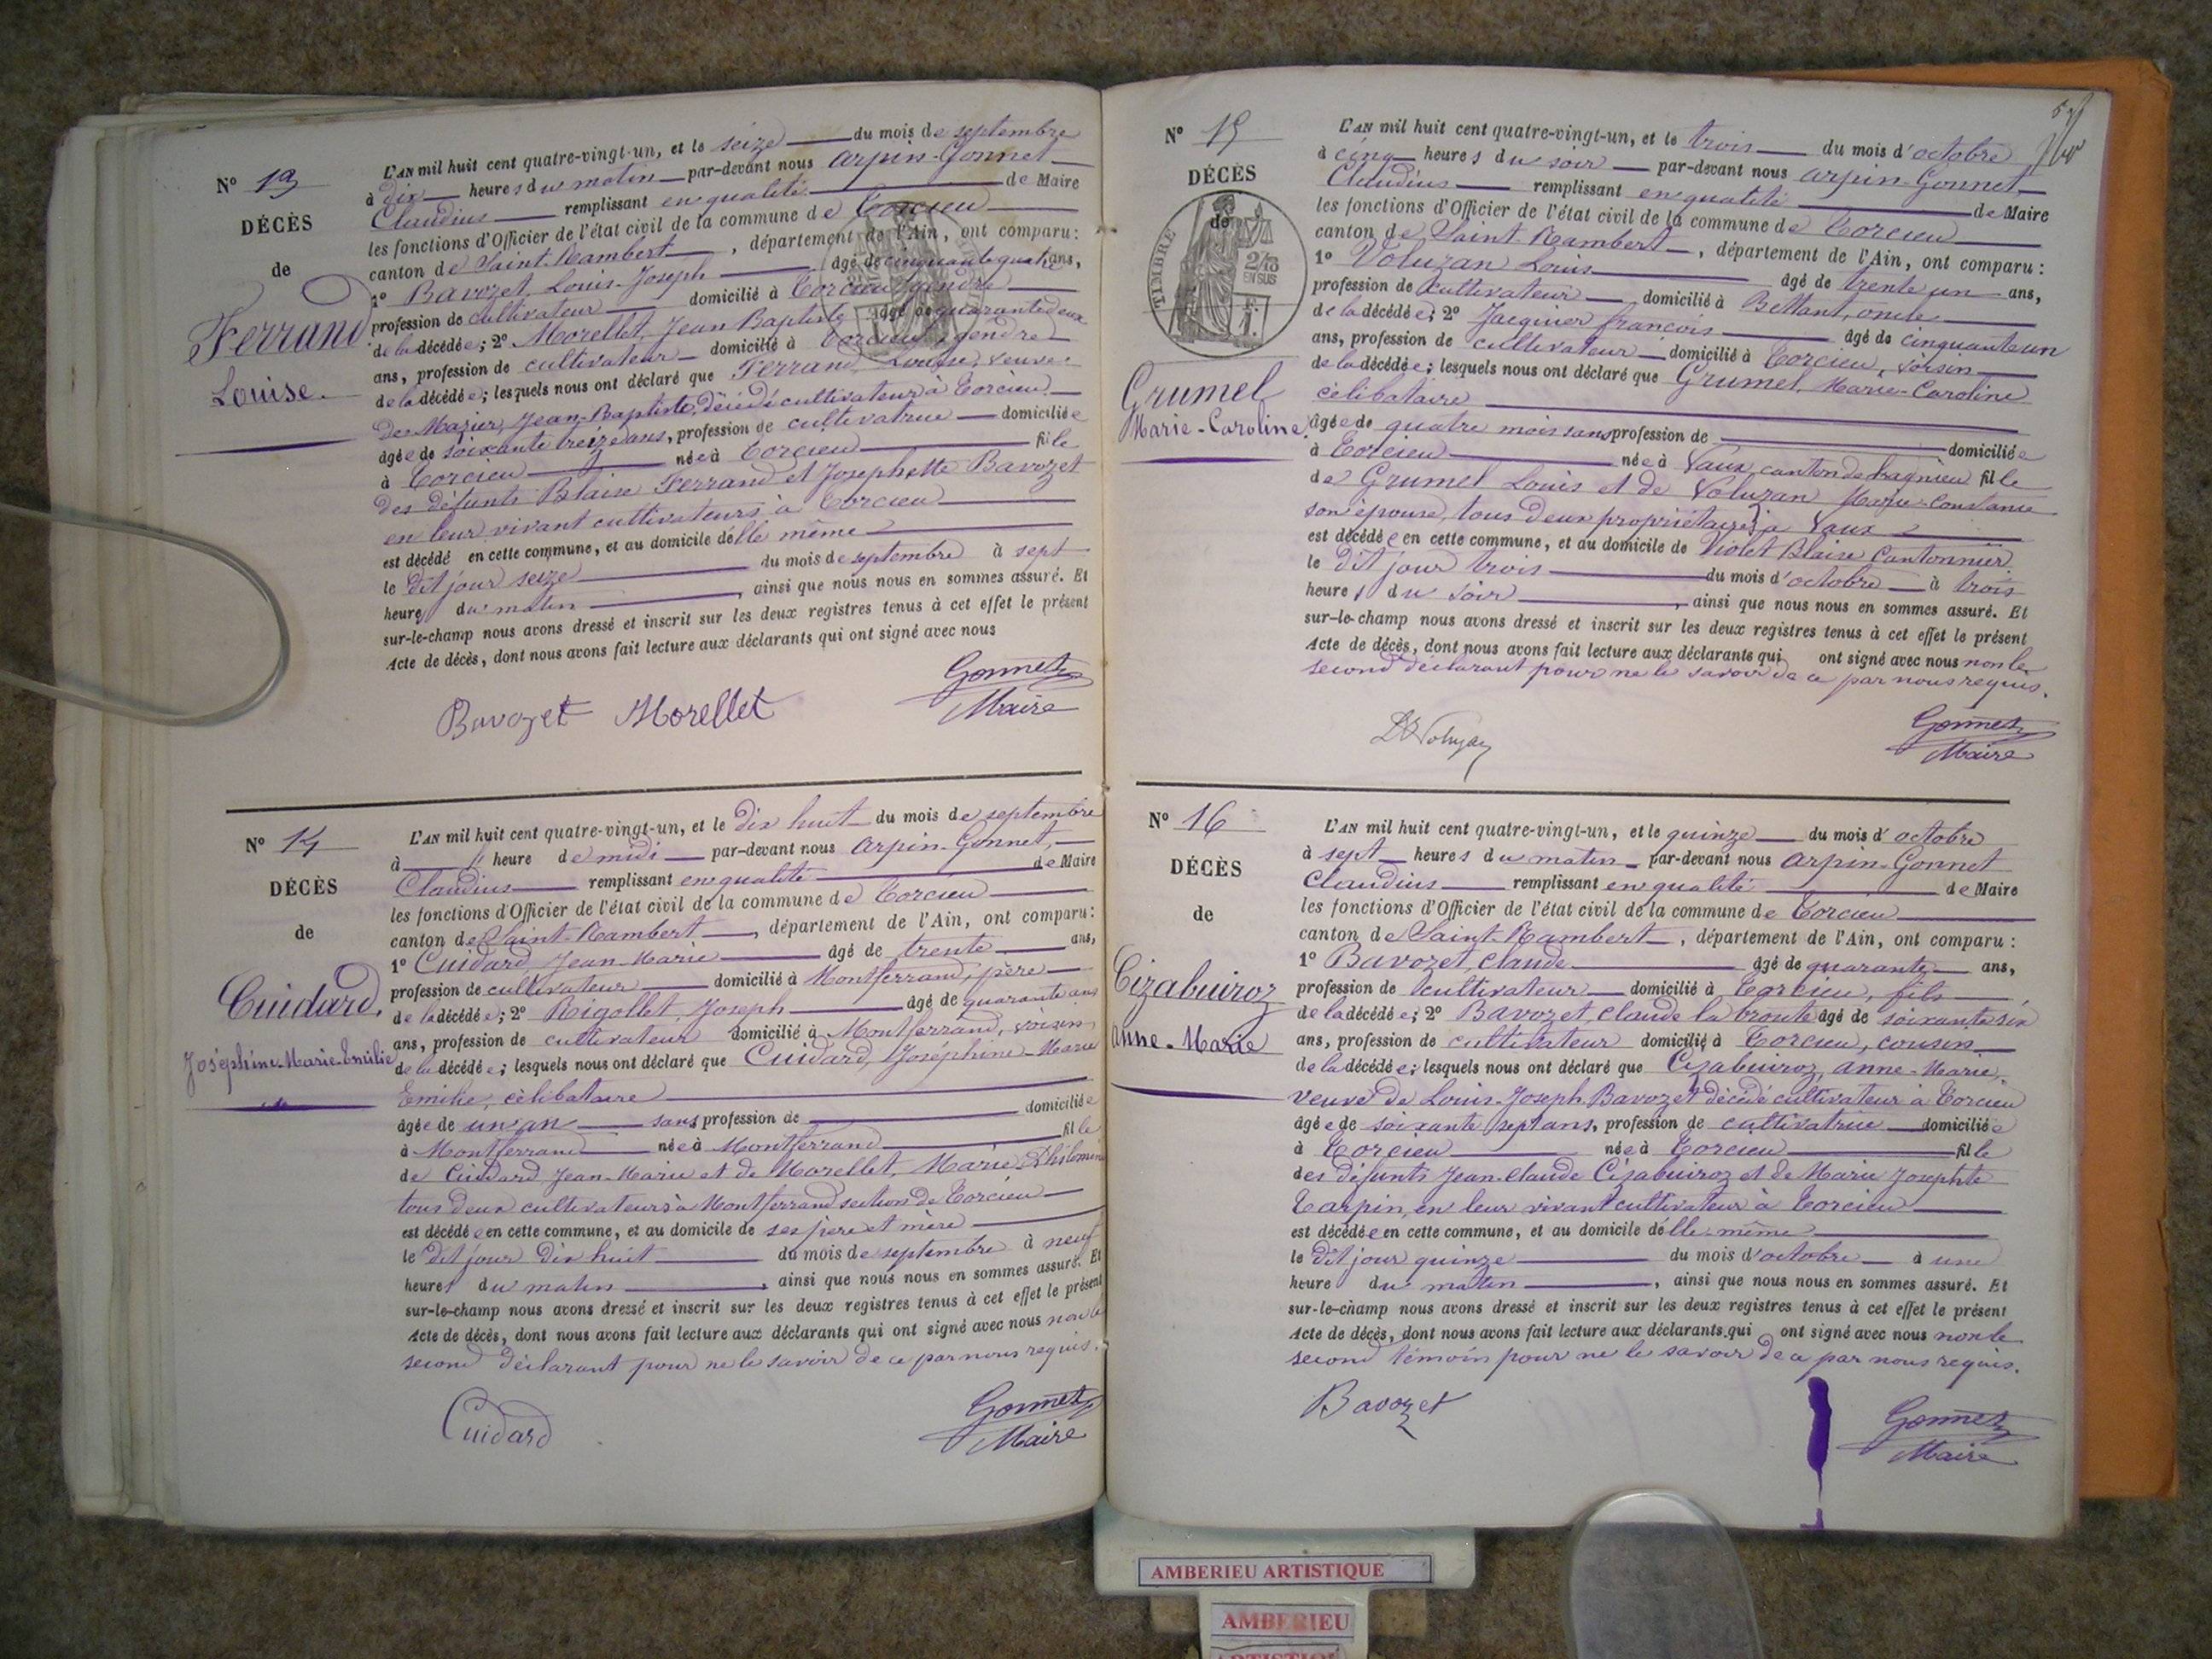 N° 13
DÉCÈS
de
Ferrand
Louise.
L'AN mil huit cent quatre-vingt-un, et le seize du mois de septembre
à dix heures du matin par-devant nous Arpin-Gonnet
Claudius remplissant en qualité de Maire
les fonctions d'Officier de l'état civil de la commune de Torcieu
canton de Saint-Rambert, département de l'Ain, ont comparu:
1° Bavozet, Louis-Joseph âgé de cinquante quatre ans,
profession de cultivateur domicilié à Torcieu, gendre
de la décédée; 2° Morellet, Jean Baptiste âgé de quarante deux
ans, profession de cultivateur domicilié à Torcieu, gendre
de la décédée; lesquels nous ont déclaré que Ferrand Louise, veuve
de Mazier, Jean-Baptiste, décédé cultivateur à Torcieu
âgée de soixante treize ans, profession de cultivatrice domiciliée
à Torcieu née à Torcieu fille
des défunts Blaise Ferrand et Josephette Bavozet
en leur vivant cultivateurs à Torcieu
est décédé en cette commune, et au domicile d'elle même
le dit jour seize du mois de septembre à sept
heures du matin, ainsi que nous nous en sommes assuré. Et
sur-le-champ nous avons dressé et inscrit sur les deux registres tenus à cet effet le présent
Acte de décès, dont nous avons fait lecture aux déclarants qui ont signé avec nous
Bavozet Morellet Gonnet
Maire
N° 14
DÉCÈS
de
Cuidard,
Joséphine-Marie-Emilie
L'AN mil huit cent quatre-vingt-un, et le dix huit du mois de septembre
à " heure de midi par-devant nous Arpin-Gonnet,
Claudius remplissant en qualité de Maire
les fonctions d'Officier de l'état civil de la commune de Torcieu
canton de Saint-Rambert, département de l'Ain, ont comparu:
1° Cuidard, Jean-Marie âgé de trente ans,
profession de cultivateur domicilié à Montferrand, père
de la décédée; 2° Rigollet, Joseph âgé de quarante ans
ans, profession de cultivateur domicilié à Montferrand, voisin
de la décédée; lesquels nous ont déclaré que Cuidard, Joséphine-Marie
Emilie, célibataire
âgée de un an sans profession de domiciliée
à Montferrand née à Montferrand fille
de Cuidard Jean-Marie et de Morellet, Marie Philomine
tous deux cultivateurs à Montferrand section de Torcieu
est décédée en cette commune, et au domicile de ses père et mère
le dit jour dix huit du mois de septembre à neuf
heures du matin, ainsi que nous nous en sommes assuré. Et
sur-le-champ nous avons dressé et inscrit sur les deux registres tenus à cet effet le présent
Acte de décès, dont nous avons fait lecture aux déclarants qui ont signé avec nous non le
second déclarant pour ne le savoir de ce par nous requis.
Cuidard Gonnet
Maire
N° 15
DÉCÈS
de
TIMBRE
2/10
EN SUS
Grumel
Marie-Caroline.
L'AN mil huit cent quatre-vingt-un, et le trois du mois d'octobre
à cinq heures du soir par-devant nous Arpin-Gonnet
Claudius remplissant en qualité de Maire
les fonctions d'Officier de l'état civil de la commune de Torcieu
canton de Saint-Rambert, département de l'Ain, ont comparu:
1° Voluzan Louis âgé de trente un ans,
profession de cultivateur domicilié à Bettant, oncle
de la décédée; 2° Jacquier françois âgé de cinquante un
ans, profession de cultivateur domicilié à Torcieu, voisin
de la décédée; lesquels nous ont déclaré que Grumel, Marie-Caroline
célibataire
âgée de quatre mois sans profession de domiciliée
à Torcieu née à Vaux, canton de Lagnieu fille
de Grumel Louis et de Voluzan Marie-Constance
son épouse, tous deux propriétaires à Vaux
est décédée en cette commune, et au domicile de Violet Blaise Cantonnier
le dit jour trois du mois d'octobre à trois
heures du soir, ainsi que nous nous en sommes assuré. Et
sur-le-champ nous avons dressé et inscrit sur les deux registres tenus à cet effet le présent
Acte de décès, dont nous avons fait lecture aux déclarants qui ont signé avec nous non le
second déclarant pour ne le savoir de ce par nous requis.
Voluzan Gonnet
Maire
N° 16
DÉCÈS
de
Cizabuiroz
Anne-Marie
L'AN mil huit cent quatre-vingt-un, et le quinze du mois d'octobre
à sept heures du matin par-devant nous Arpin-Gonnet
Claudius remplissant en qualité de Maire
les fonctions d'Officier de l'état civil de la commune de Torcieu
canton de Saint-Rambert, département de l'Ain, ont comparu:
1° Bavozet, Claude âgé de quarante ans,
profession de cultivateur domicilié à Torcieu, fils
de la décédée; 2° Bavozet, Claude la broute âgé de soixante six
ans, profession de cultivateur domicilié à Torcieu, cousin
de la décédée; lesquels nous ont déclaré que Cizabuiroz, Anne-Marie,
veuve de Louis-Joseph Bavozet décédé cultivateur à Torcieu
âgée de soixante sept ans, profession de cultivatrice domiciliée
à Torcieu née à Torcieu fille
des défunts Jean-Claude Cizabuiroz et de Marie Josephte
Tarpin, en leur vivant cultivateur à Torcieu
est décédée en cette commune, et au domicile d'elle-même
le dit jour quinze du mois d'octobre à une
heure du matin, ainsi que nous nous en sommes assuré. Et
sur-le-champ nous avons dressé et inscrit sur les deux registres tenus à cet effet le présent
Acte de décès, dont nous avons fait lecture aux déclarants qui ont signé avec nous non le
second témoin pour ne le savoir de ce par nous requis.
Bavozet Gonnet
Maire
AMBERIEU ARTISTIQUE
AMBERIEU
ARTISTIQUE